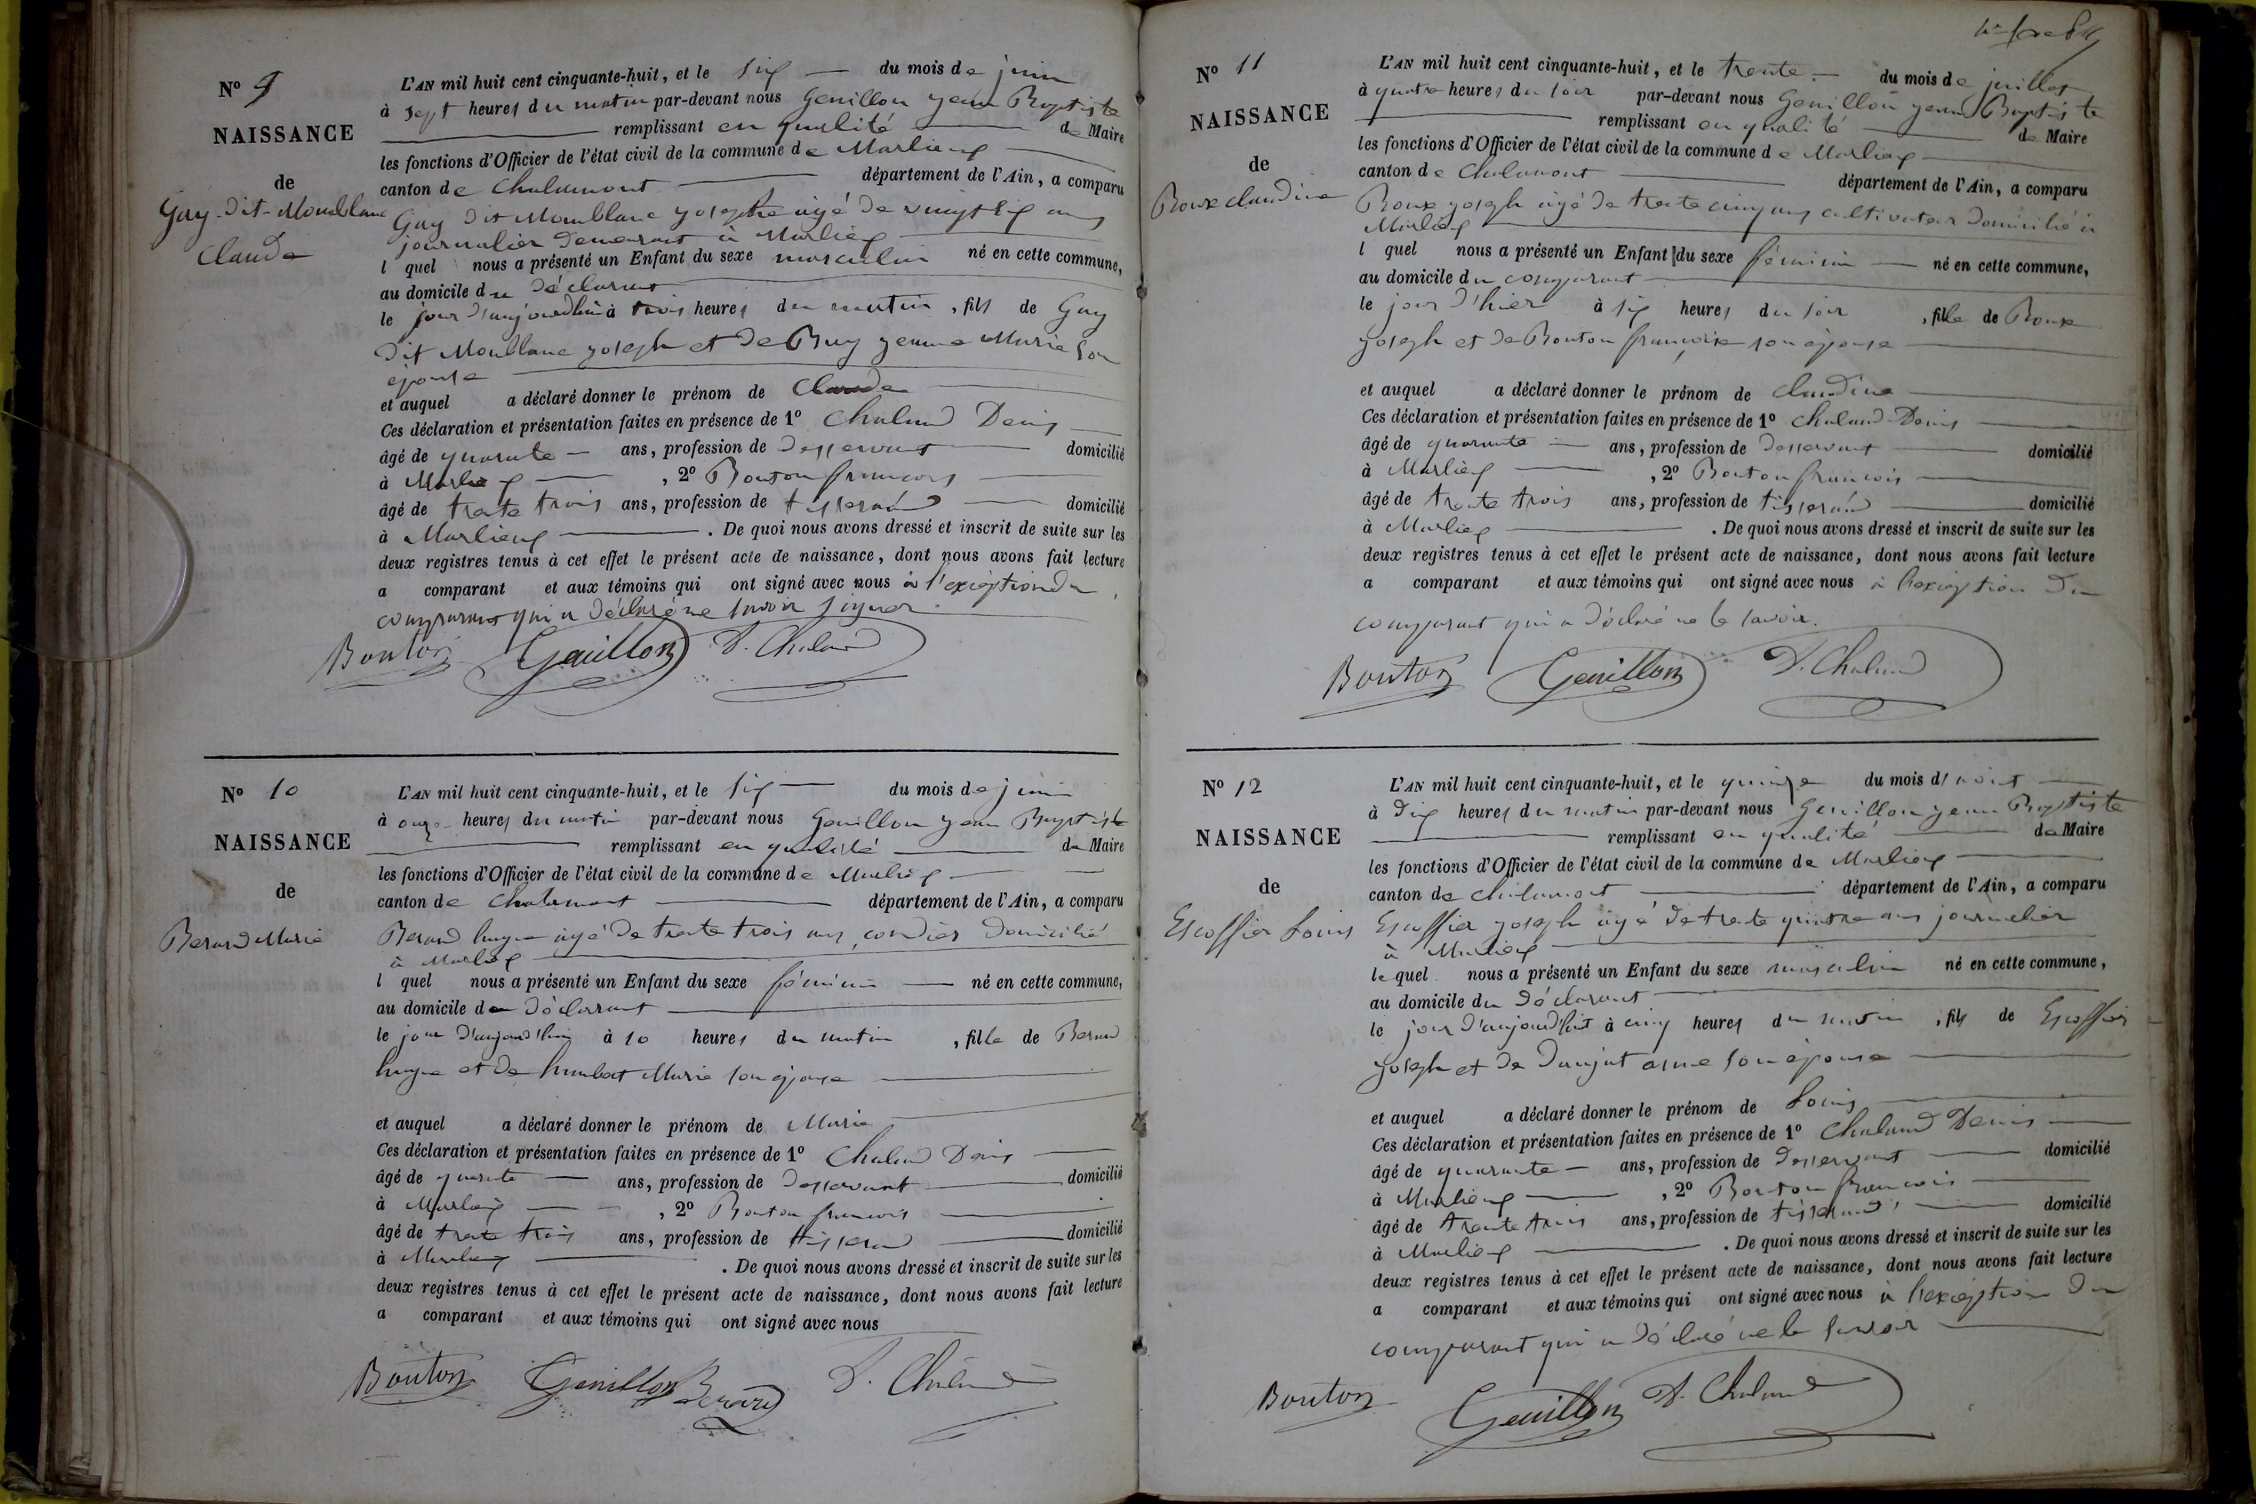 N° 9
NAISSANCE
de
Guy-dit-Moublanc
Claude
L'AN mil huit cent cinquante-huit, et le six du mois de juin
à sept heures du matin par-devant nous Genillon jean Baptiste
remplissant en qualité de Maire
les fonctions d'Officier de l'état civil de la commune de Marlieux
canton de Chalamont département de l'Ain, a comparu
Guy dit Moublanc joseph âgé de vingt six ans
journalier demeurant à Marlieux
l quel nous a présenté un Enfant du sexe masculin né en cette commune,
au domicile du déclarant
le jour d'aujourdhui à trois heures du matin, fils de Guy
dit Moublanc joseph et de Buy jeanne Marie son
épouse
et auquel a déclaré donner le prénom de Claude
Ces déclaration et présentation faites en présence de 1° Chaland Denis
âgé de quarante ans, profession de desservant domicilié
à Marlieux, 2° Bouton francois
âgé de trente trois ans, profession de tisserand domicilié
à Marlieux. De quoi nous avons dressé et inscrit de suite sur les
deux registres tenus à cet effet le présent acte de naissance, dont nous avons fait lecture
a comparant et aux témoins qui ont signé avec nous à l'exception du
comparant qui a déclaré ne savoir signer.
Bouton Genillon D. Chaland
N° 10
NAISSANCE
de
Berard Marie
L'AN mil huit cent cinquante-huit, et le six du mois de juin
à onze heures du matin par-devant nous Genillon jean Baptiste
remplissant en qualité de Maire
les fonctions d'Officier de l'état civil de la commune de Marlieux
canton de Chalamont département de l'Ain, a comparu
Berard hugue âgé de trente trois ans, cordier domicilié
à Marlieux
l quel nous a présenté un Enfant du sexe féminin né en cette commune,
au domicile du déclarant
le jour d'aujourd'hui à 10 heures du matin, fille de Berard
hugue et de humbert Marie son épouse
et auquel a déclaré donner le prénom de Marie
Ces déclaration et présentation faites en présence de 1° Chaland Denis
âgé de quarante ans, profession de desservant domicilié
à Marlieux, 2° Bouton francois
âgé de trente trois ans, profession de tisserand domicilié
à Marlieux. De quoi nous avons dressé et inscrit de suite sur les
deux registres tenus à cet effet le présent acte de naissance, dont nous avons fait lecture
a comparant et aux témoins qui ont signé avec nous
Bouton Genillon Berard D. Chaland
N° 11
NAISSANCE
de
Roux claudine
L'AN mil huit cent cinquante-huit, et le trente du mois de juillet
à quatre heures du soir par-devant nous Genillon jean Baptiste
remplissant en qualité de Maire
les fonctions d'Officier de l'état civil de la commune de Marlieux
canton de Chalamont département de l'Ain, a comparu
Roux joseph âgé de trente cinq ans cultivateur domicilié à
Marlieux
l quel nous a présenté un Enfant du sexe féminin né en cette commune,
au domicile du comparant
le jour d'hier à six heures du soir, fille de Roux
joseph et de Bouton françoise son épouse
et auquel a déclaré donner le prénom de claudine
Ces déclaration et présentation faites en présence de 1° Chaland Denis
âgé de quarante ans, profession de desservant domicilié
à Marlieux, 2° Bouton francois
âgé de trente trois ans, profession de tisserand domicilié
à Marlieux. De quoi nous avons dressé et inscrit de suite sur les
deux registres tenus à cet effet le présent acte de naissance, dont nous avons fait lecture
a comparant et aux témoins qui ont signé avec nous à l'exception du
comparant qui a déclaré ne le savoir.
Bouton Genillon D. Chaland
N° 12
NAISSANCE
de
Escoffier Louis
L'AN mil huit cent cinquante-huit, et le quinze du mois d'août
à dix heures du matin par-devant nous Genillon jean Baptiste
remplissant en qualité de Maire
les fonctions d'Officier de l'état civil de la commune de Marlieux
canton de chalamont département de l'Ain, a comparu
Escoffier joseph âgé de trente quatre ans journalier
à Marlieux
le quel nous a présenté un Enfant du sexe masculin né en cette commune,
au domicile du déclarant
le jour d'aujourd'hui à cinq heures du matin, fils de Escoffier
joseph et de Daujat anne son épouse
et auquel a déclaré donner le prénom de Louis
Ces déclaration et présentation faites en présence de 1° Chaland Denis
âgé de quarante ans, profession de desservant domicilié
à Marlieux, 2° Bouton francois
âgé de trente trois ans, profession de tisserand domicilié
à Marlieux. De quoi nous avons dressé et inscrit de suite sur les
deux registres tenus à cet effet le présent acte de naissance, dont nous avons fait lecture
a comparant et aux témoins qui ont signé avec nous à l'exception du
comparant qui a déclaré ne le savoir
Bouton Genillon D. Chaland